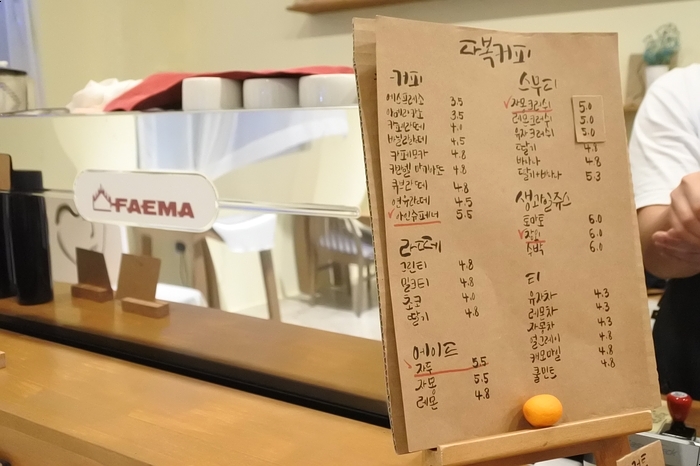 다복커피
커피
에스프레소 3.5
아메리카노 3.5
카페라떼 4.0
바닐라라떼 4.5
카페모카 4.8
카라멜 마키아또 4.8
큐브라떼 4.8
연유라떼 4.5
아인슈페너 5.5
라떼
그린티 4.8
밀크티 4.8
초코 4.8
딸기 4.8
에이드
자두 5.5
자몽 5.5
레몬 4.8
스무디
자몽크러쉬 5.0
레몬크러쉬 5.0
유자크러쉬 5.0
딸기
바나나 4.8
딸기+바나나 5.3
생과일주스
토마토 6.0
6.0
수박 6.0
티
유자차 4.3
레몬차 4.3
자몽차 4.3
얼그레이 4.8
캐모마일 4.8
쿨민트 4.8
FAEMA